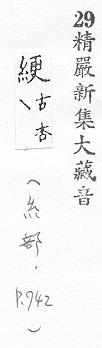 29精嚴新集大藏音
綆古杏
(糸部，P.942)